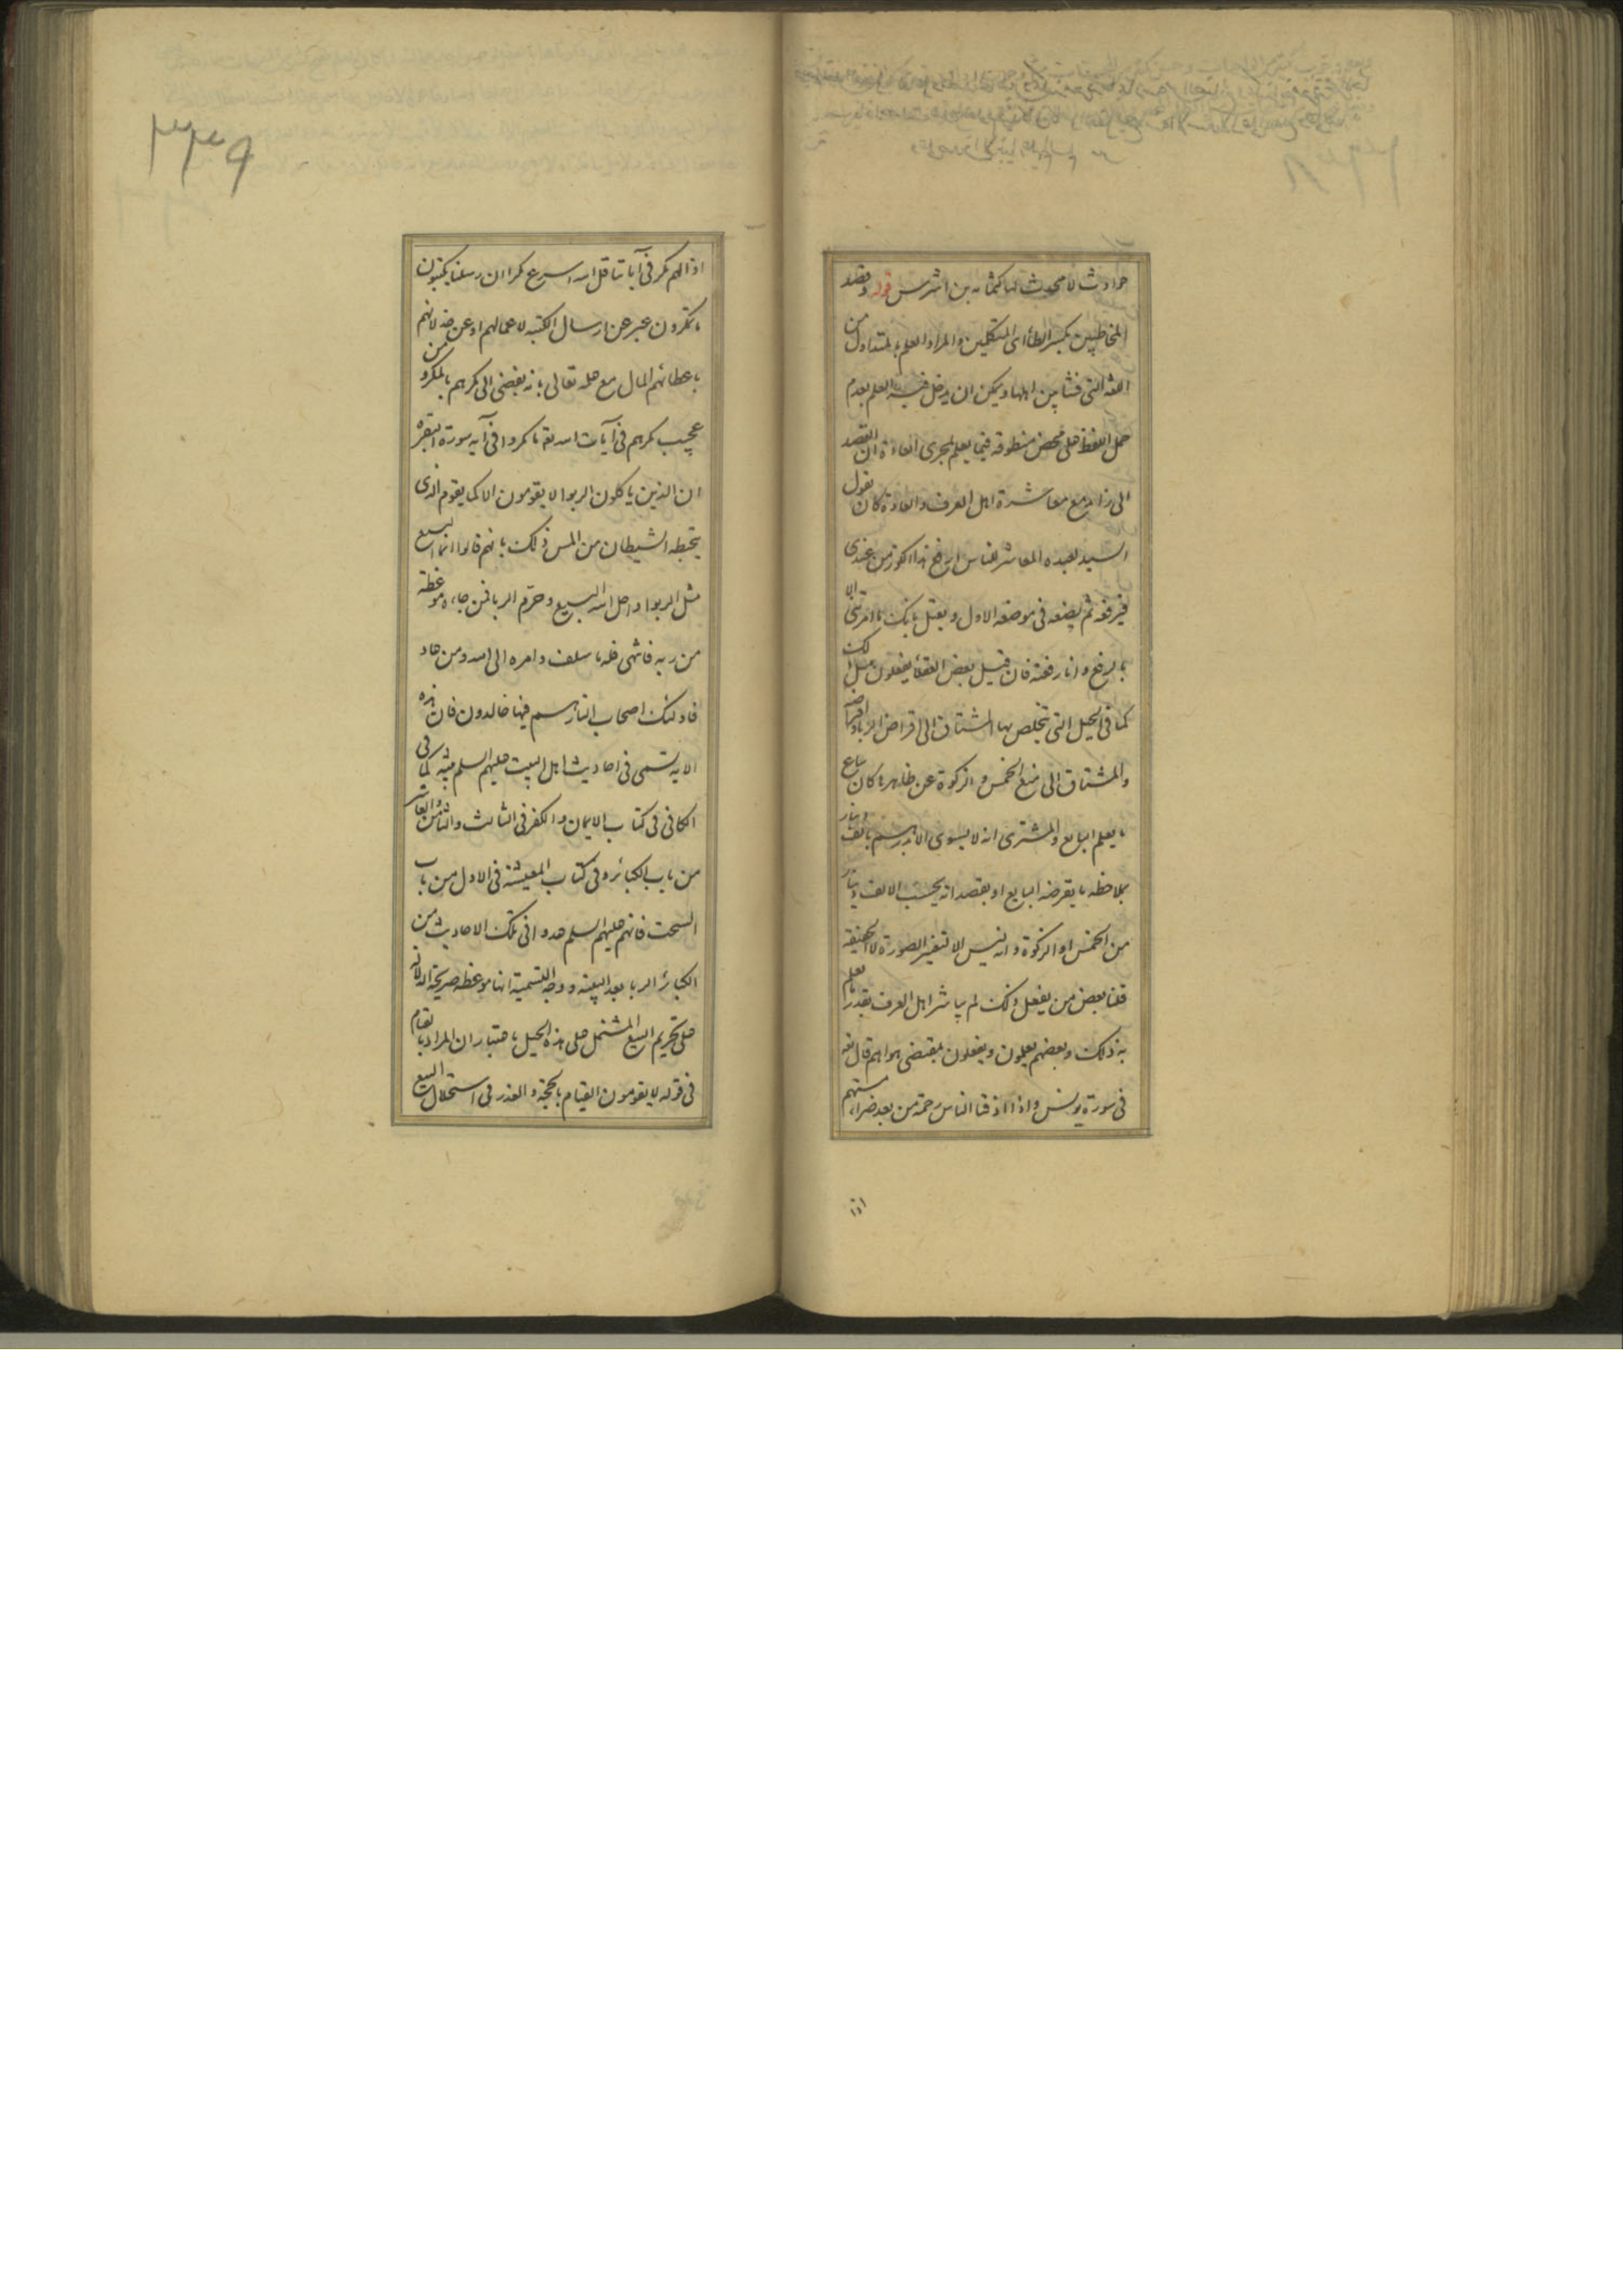 حوادث لا محدث لها كثمامه بن اشرس قوله وقصد
المخاطبين بكسر الطاء اى المتكلمين والمراد العلم بالمتداول من
اللغة التى نشأ بين اهلها ويمكن ان يدخل فيه العلم بعدم
حمل اللفظ على محض منطوقه فيما يعلم بمجرى العادة ان القصد
الى زائد مع معاشرة اهل العرف والعادة كان يقول
السيد لعبده المعاشر للناس ارفع هذا الكوز من عندى
فيرفعه ثم يضعه فى موضعه الاول ويعتل بانك ما امرتنى الا
بالرفع وانا رفعته فان قيل بعض العقلاء يفعلون مثل ذلك
كما فى الحيل التى يتخلص بها المشتاق الى اقراض الربا
والمشتاق الى منع الخمس والزكوة عن ظاهرها كان يباع
ما يعلم البايع والمشترى انه لا يسوى الا بدرهم بالف دينار
بملاحظه ما يقرضه البايع او بقصد انه يحسب الالف دينار
من الخمس او الزكوة وانه ليس الا لتغير الصورة لا الحقيقة
قلنا بعض من يفعل ذلك لم يباشر اهل العرف بقدر ما يعلم
به ذلك وبعضهم يعلمون ويفعلون بمقتضى هواهم قال تعه
فى سورة يونس واذا اذقنا الناس رحمة من بعد ضراء مستهم
اذا
٣٣٩
اذا لهم مكر فى آياتنا قل الله اسرع مكرا ان رسلنا يكتبون
ما تمكرون عبر عن ارسال الكتبه لاعمالهم او عن خذلانهم
باعطائهم المال مع علمه تعالى بانه يفضى الى مكرهم بالمكر ومن
عجيب مكرهم فى آيات الله تع ما مكروا فى آيه سورة البقره
ان الذين ياكلون الربوا لا يقومون الا كما يقوم الذى
يتخبطه الشيطان من المس ذلك بانهم قالوا انما البيع
مثل الربوا واحل الله البيع وحرّم الربا فمن جاءه موعظة
من ربه فانتهى فله ما سلف وامره الى الله ومن عاد
فاولئك اصحاب النار هم فيها خالدون فان هذه
الايه تسمى فى احاديث اهل البيت عليهم السلم بينه كما فى
الكافى فى كتاب الايمان والكفر فى الثالث والثامن والعاشر
من باب الكبائر وفى كتاب المعيشة فى الاول من باب
السحت فانهم عليهم السلم عدوا فى تلك الاحاديث من
الكبائر الربا بعد البينه ووجه التسمية انها موعظه صريحة الدلالة
على تحريم البيع المشتمل على هذه الحيل باعتبار ان المراد بالقيام
فى قوله لا يقومون القيام بالحجة والعذر فى استحلال البيع